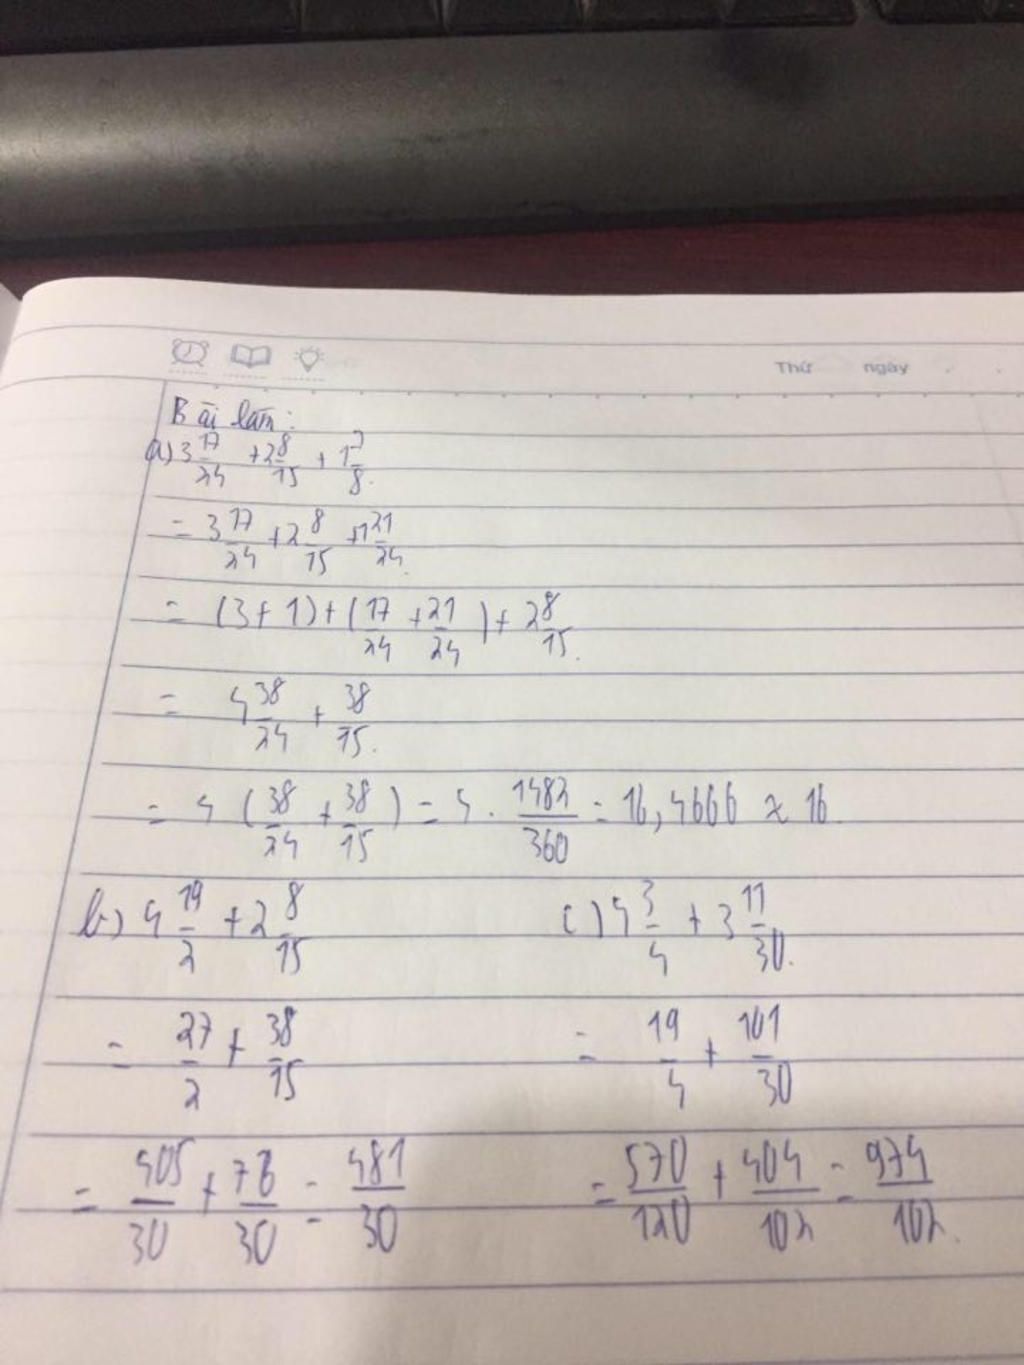 Thứ ngày
Bài làm:
a) 3 17/24 + 2 8/15 + 1 7/8.
= 3 17/24 + 2 8/15 + 1 21/24.
= (3 + 1) + (17/24 + 21/24) + 2 8/15.
= 4 38/24 + 38/15.
= 4 (38/24 + 38/15) = 4 . 1482/360 = 16,4666 ≈ 16.
b) 4 19/2 + 2 8/15
c) 4 3/4 + 3 11/30.
= 27/2 + 38/15
= 19/4 + 101/30
= 405/30 + 76/30 = 481/30
= 570/120 + 404/102 = 974/102.